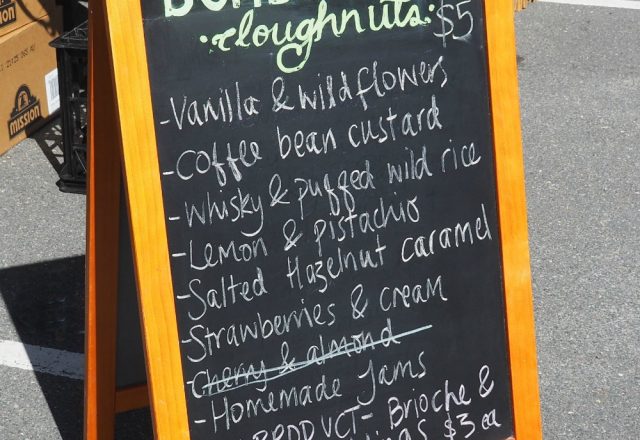 doughnuts: $5
-Vanilla & wildflowers
-Coffee bean custard
-Whisky & puffed wild rice
-Lemon & pistachio
-Salted Hazelnut caramel
-Strawberries & cream
-Cherry & almond
-Homemade Jams
PRODUCT- Brioche &
$3 ea
MISSION
MISSION